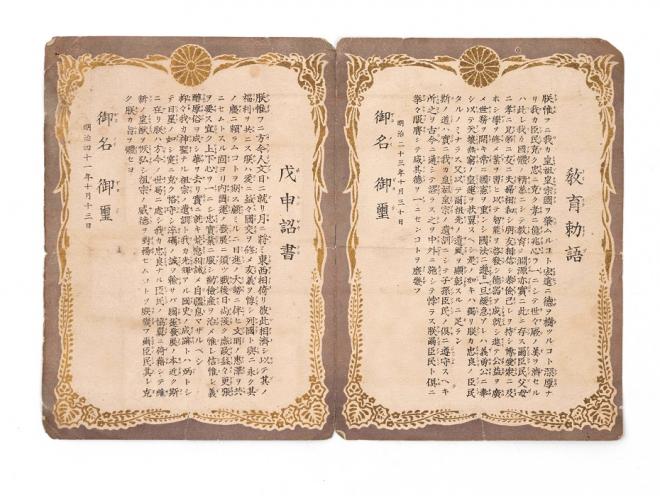 教育勅語
朕惟フニ我カ皇祖皇宗國ヲ肇ムルコト宏遠ニ德ヲ樹ツルコト深厚ナ
リ我カ臣民克ク忠ニ克ク孝ニ億兆心ヲ一ニシテ世々厥ノ美ヲ濟セル
ハ此レ我カ國體ノ精華ニシテ教育ノ淵源亦實ニ此ニ存ス爾臣民父母
ニ孝ニ兄弟ニ友ニ夫婦相和シ朋友相信シ恭儉己レヲ持シ博愛衆ニ及
ホシ學ヲ修メ業ヲ習ヒ以テ智能ヲ啓發シ德器ヲ成就シ進テ公益ヲ廣
メ世務ヲ開キ常ニ國憲ヲ重シ國法ニ遵ヒ一旦緩急アレハ義勇公ニ奉
シ以テ天壤無窮ノ皇運ヲ扶翼スヘシ是ノ如キハ獨リ朕カ忠良ノ臣民
タルノミナラス又以テ爾祖先ノ遺風ヲ顯彰スルニ足ラン
斯ノ道ハ實ニ我カ皇祖皇宗ノ遺訓ニシテ子孫臣民ノ倶ニ遵守スヘキ
所之ヲ古今ニ通シテ謬ラス之ヲ中外ニ施シテ悖ラス朕爾臣民ト倶ニ
拳々服膺シテ咸其德ヲ一ニセンコトヲ庶幾フ
明治二十三年十月三十日
御名 御璽
戊申詔書
朕惟フニ方今人文日ニ就リ月ニ將ミ東西相倚リ彼此相濟シ以テ其ノ
福利ヲ共ニス朕ハ爰ニ益々國交ヲ修メ友義ヲ惇シ列國ト與ニ永ク其
ノ慶ニ賴ラムコトヲ期ス顧ミルニ日進ノ大勢ニ伴ヒ文明ノ惠澤ヲ共
ニセムトスル固ヨリ內國運ノ發展ニ須ツ戰後日尚淺ク庶政益々更張
ヲ要ス宜ク上下心ヲ一ニシ忠實業ニ服シ勤儉產ヲ治メ惟レ信惟レ義
醇厚俗ヲ成シ華ヲ去リ實ニ就キ荒怠相誡メ自彊息マサルヘシ
抑々我カ神聖ナル祖宗ノ遺訓ト我カ光輝アル國史ノ成跡トハ炳トシ
テ日星ノ如シ寔ニ克ク恪守シ淬礪ノ誠ヲ輸サハ國運發展ノ本近ク斯
ニ在リ朕ハ方今ノ世局ニ處シ我カ忠良ナル臣民ノ協翼ニ倚藉シテ維
新ノ皇猷ヲ恢弘シ祖宗ノ威德ヲ對揚セムコトヲ庶幾フ爾臣民其レ克
ク朕カ旨ヲ體セヨ
御名 御璽
明治四十一年十月十三日